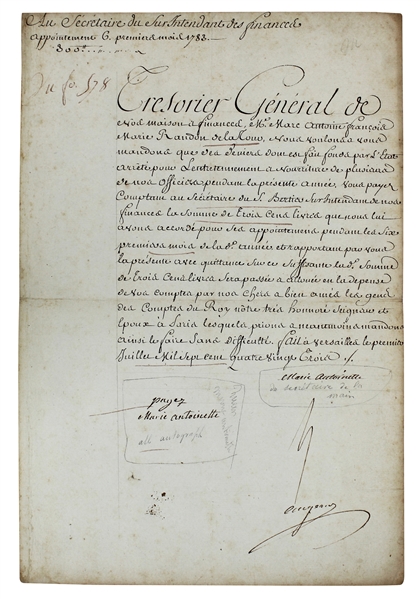 Au Secretaire du SurIntendant des finances
appointement 6. premiers mois 1783.
300#
Tresorier Général de
nos maison & finances, Mr. Marc Antoine François
Marie Randon de la Tour, nous voulons & vous
mandons que des deniers dont est fait fonds par l'Etat
arrêté pour l'entretennement & nourriture de plusieurs
de nos officiers pendant la presente année, vous payez
Comptant au Sécretaire du S. Bertier SurIntendant de nos
finances la Somme de Trois Cens livres que nous lui
avons accordé pour ses appointemens pendant les Six
premiers mois de lad. année et rapportant par vous
la presente avec quittance sur ce Suffisante lad. Somme
de Trois Cens livres sera passée & allouée en la depense
de vos comptes par nos chers & bien amés les gens
des Comptes du Roy nôtre très honnoré Seigneur et
Epoux à Paris lesquels prions & neantmoins mandons
ainsi le faire Sans difficulté. fait à Versailles le premier
Juillet Mil Sept cent Quatre vingt Trois ./.
Marie Antoinette
du secrétaire de la
main
payez
Marie antoinette
all autograph